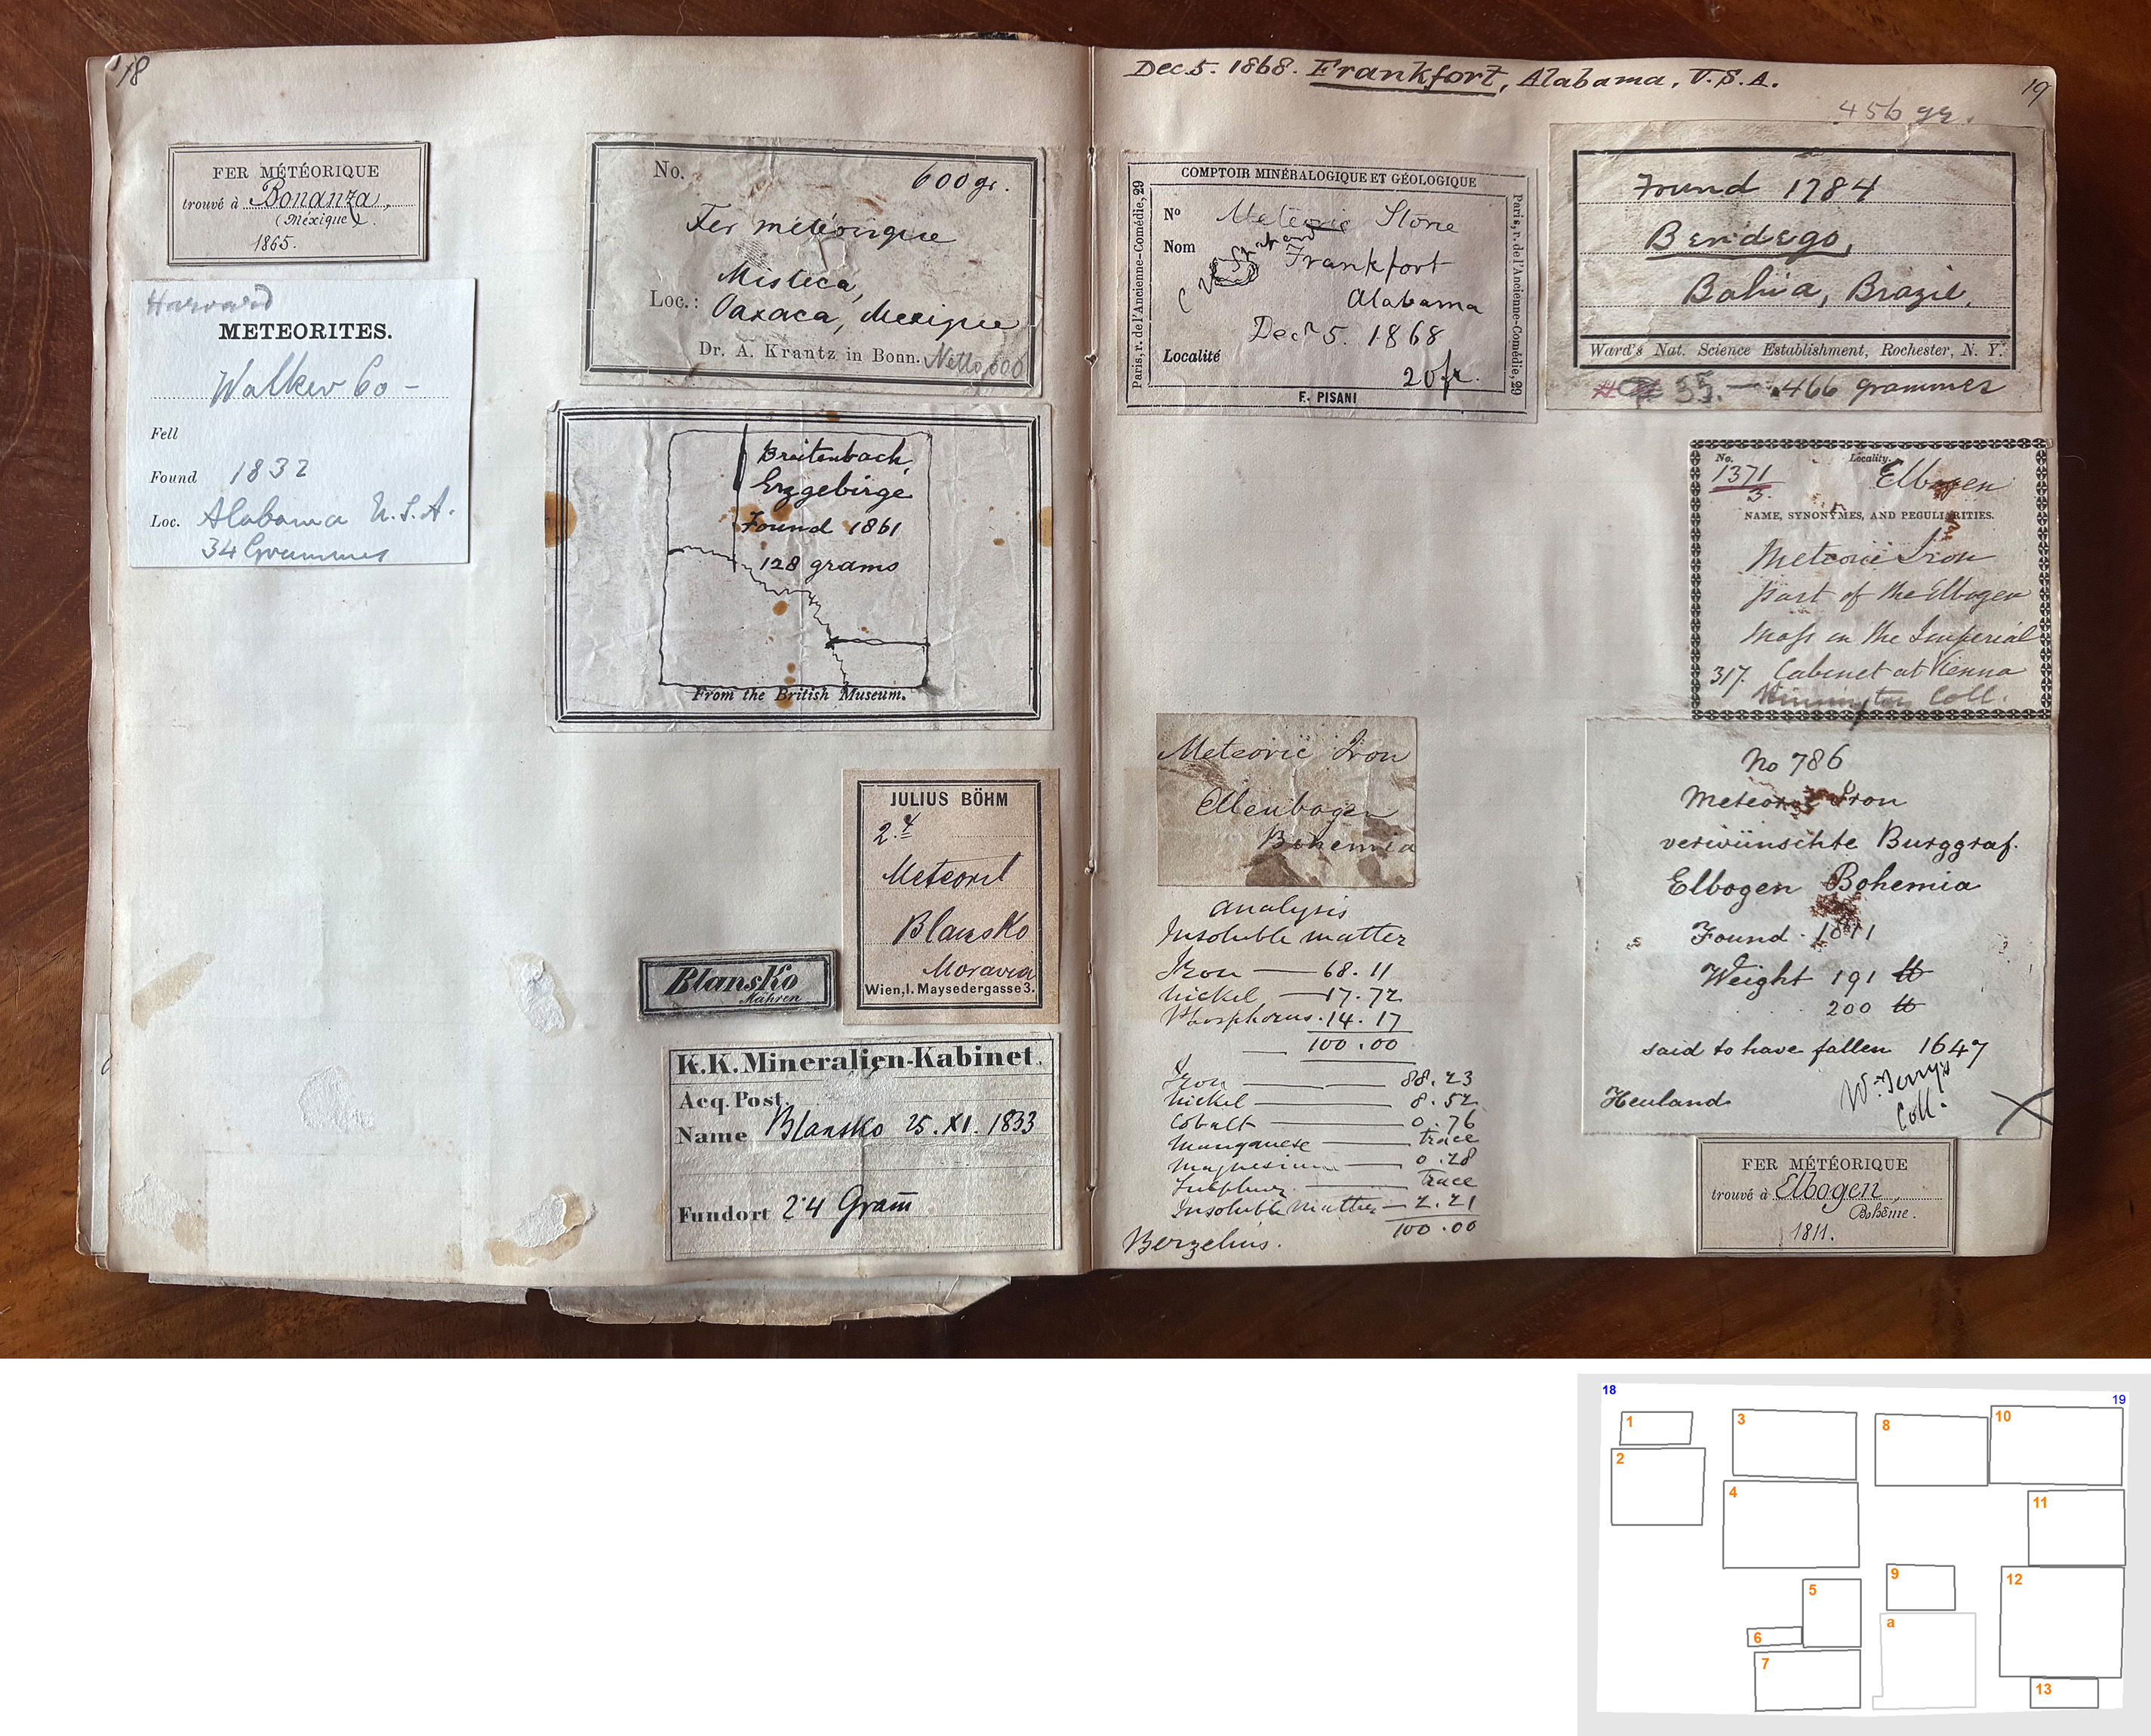 18
FER MÉTÉORIQUE
trouvé à Bonanza,
(Méxique).
1865.
Harvard
METEORITES.
Walker Co –
Fell
Found 1832
Loc. Alabama U.S.A.
34 Grammes
No. 600 gr.
Fer météorique
Misteca,
Loc.: Oaxaca, Mexique
Dr. A. Krantz in Bonn. Netto, 606
Breitenbach,
Erzgebirge
Found 1861
128 grams
From the British Museum.
JULIUS BÖHM
2.4
Meteorit
Blansko
Moravia
Wien, I. Maysedergasse 3.
Blansko
Mähren
K.K. Mineralien-Kabinet.
Acq. Post.
Name Blansko 25. XI. 1833
Fundort 2·4 Gram̄
Dec. 5. 1868. Frankfort, Alabama, U.S.A.
19
456 gr.
COMPTOIR MINÉRALOGIQUE ET GÉOLOGIQUE
Paris, r. de l'Ancienne-Comédie, 29
Paris, r. de l'Ancienne-Comédie, 29
No Meteoric Stone
Nom Frankfort
Alabama
Decr 5. 1868
Localité
20 fr.
F. PISANI
Found 1784
Bendego,
Bahia, Brazil.
Ward's Nat. Science Establishment, Rochester, N. Y.
35.— 466 grammes
No. Locality.
1371 Elbogen
3.
NAME, SYNONYMES, AND PECULIARITIES.
Meteoric Iron
part of the Elbogen
Mass in the Imperial
317. Cabinet at Vienna
Coll.
Meteoric Iron
Ellenbogen
Bohemia
Analysis
Insoluble matter
Iron — 68.11
Nickel — 17.72
Phosphorus . 14.17
100.00
Iron — 88.23
Nickel — 8.52
Cobalt — 0.76
Manganese — trace
Magnesium — 0.28
Sulphur — Trace
Insoluble Matter — 2.21
100.00
Berzelius.
No 786
Meteoric Iron
verwünschte Burggraf.
Elbogen Bohemia
Found . 1811
Weight 191 ℔
200 ℔
said to have fallen 1647
Heuland.
W. Terry's
Coll.
FER MÉTÉORIQUE
trouvé à Elbogen,
Bohême.
1811.
18
19
1
2
3
4
5
6
7
8
9
a
10
11
12
13